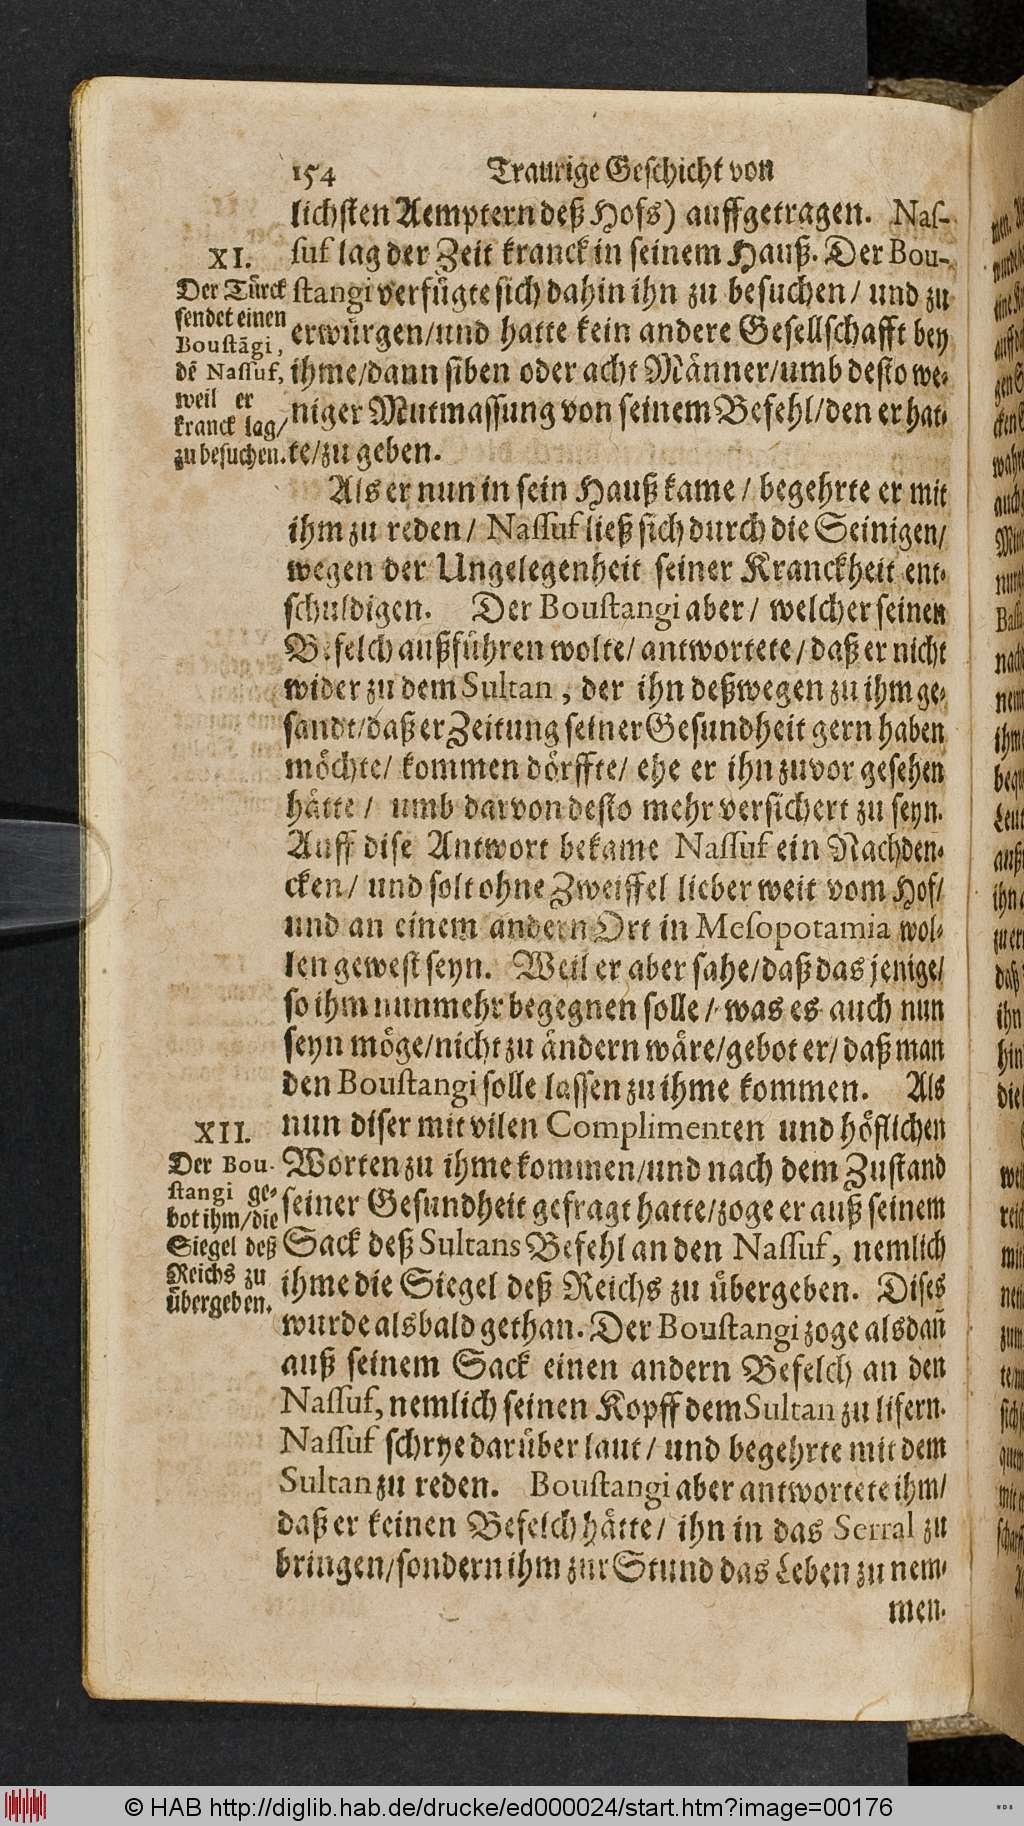 154 Traurige Geschicht von
lichsten Aemptern deß Hofs) auffgetragen. Nas-
suf lag der Zeit kranck in seinem Hauß. Der Bou-
stangi verfügte sich dahin ihn zu besuchen/ und zu
erwürgen/und hatte kein andere Gesellschafft bey
ihme/dann siben oder acht Männer/umb desto we-
niger Mutmassung von seinem Befehl/den er hat-
te/zu geben.
XI.
Der Türck
sendet einen
Boustãgi,
dẽ Nassuf,
weil er
kranck lag/
zu besuchen.
Als er nun in sein Hauß kame/ begehrte er mit
ihm zu reden/ Nassuf ließ sich durch die Seinigen/
wegen der Ungelegenheit seiner Kranckheit ent-
schuldigen. Der Boustangi aber/ welcher seinen
Befelch außführen wolte/ antwortete/ daß er nicht
wider zu dem Sultan, der ihn deßwegen zu ihm ge-
sandt/daß er Zeitung seiner Gesundheit gern haben
möchte/ kommen dörffte/ ehe er ihn zuvor gesehen
hätte/ umb darvon desto mehr versichert zu seyn.
Auff dise Antwort bekame Nassuf ein Nachden-
cken/ und solt ohne Zweiffel lieber weit vom Hof/
und an einem andern Ort in Mesopotamia wol-
len gewest seyn. Weil er aber sahe/daß das jenige/
so ihm nunmehr begegnen solle/ was es auch nun
seyn möge/nicht zu ändern wäre/gebot er/ daß man
den Boustangi solle lassen zu ihme kommen. Als
nun diser mit vilen Complimenten und höflichen
Worten zu ihme kommen/und nach dem Zustand
seiner Gesundheit gefragt hatte/zoge er auß seinem
Sack deß Sultans Befehl an den Nassuf, nemlich
ihme die Siegel deß Reichs zu übergeben. Dises
wurde alsbald gethan. Der Boustangi zoge alsdañ
auß seinem Sack einen andern Befelch an den
Nassuf, nemlich seinen Kopff dem Sultan zu lifern.
Nassuf schrye darüber laut/ und begehrte mit dem
Sultan zu reden. Boustangi aber antwortete ihm/
daß er keinen Befelch hätte/ ihn in das Serral zu
bringen/sondern ihm zur Stund das Leben zu nem-
men.
XII.
Der Bou-
stangi ge-
bot ihm/die
Siegel deß
Reichs zu
übergeben.
© HAB http://diglib.hab.de/drucke/ed000024/start.htm?image=00176